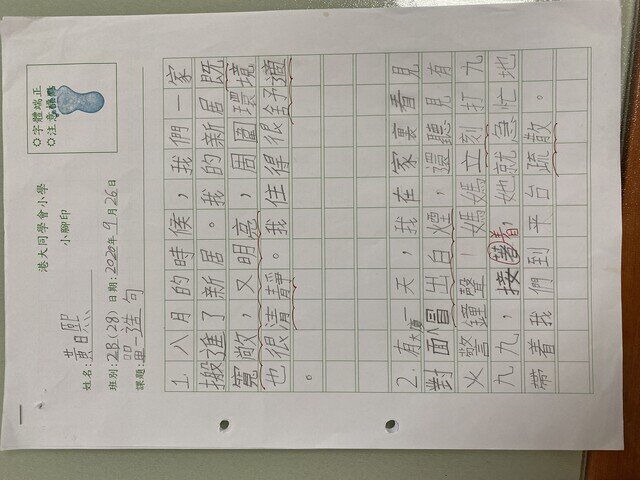 港大同學會小學
小腳印
字體端正
注意標點
姓名:黃日熙
班別:2B(28) 日期:2020年9月26日
1. 八月的時候,我們一家
搬進了新居。我的新居既
寬敞,又明亮,周圍環境
也很清靜。我住得很舒適
。
2. 有一天,我在家裏看見
對面大廈冒出白煙,還聽見有
火警鐘聲!媽媽立刻打九
九九,接著着,她就急忙地
帶着我們到平台疏散。